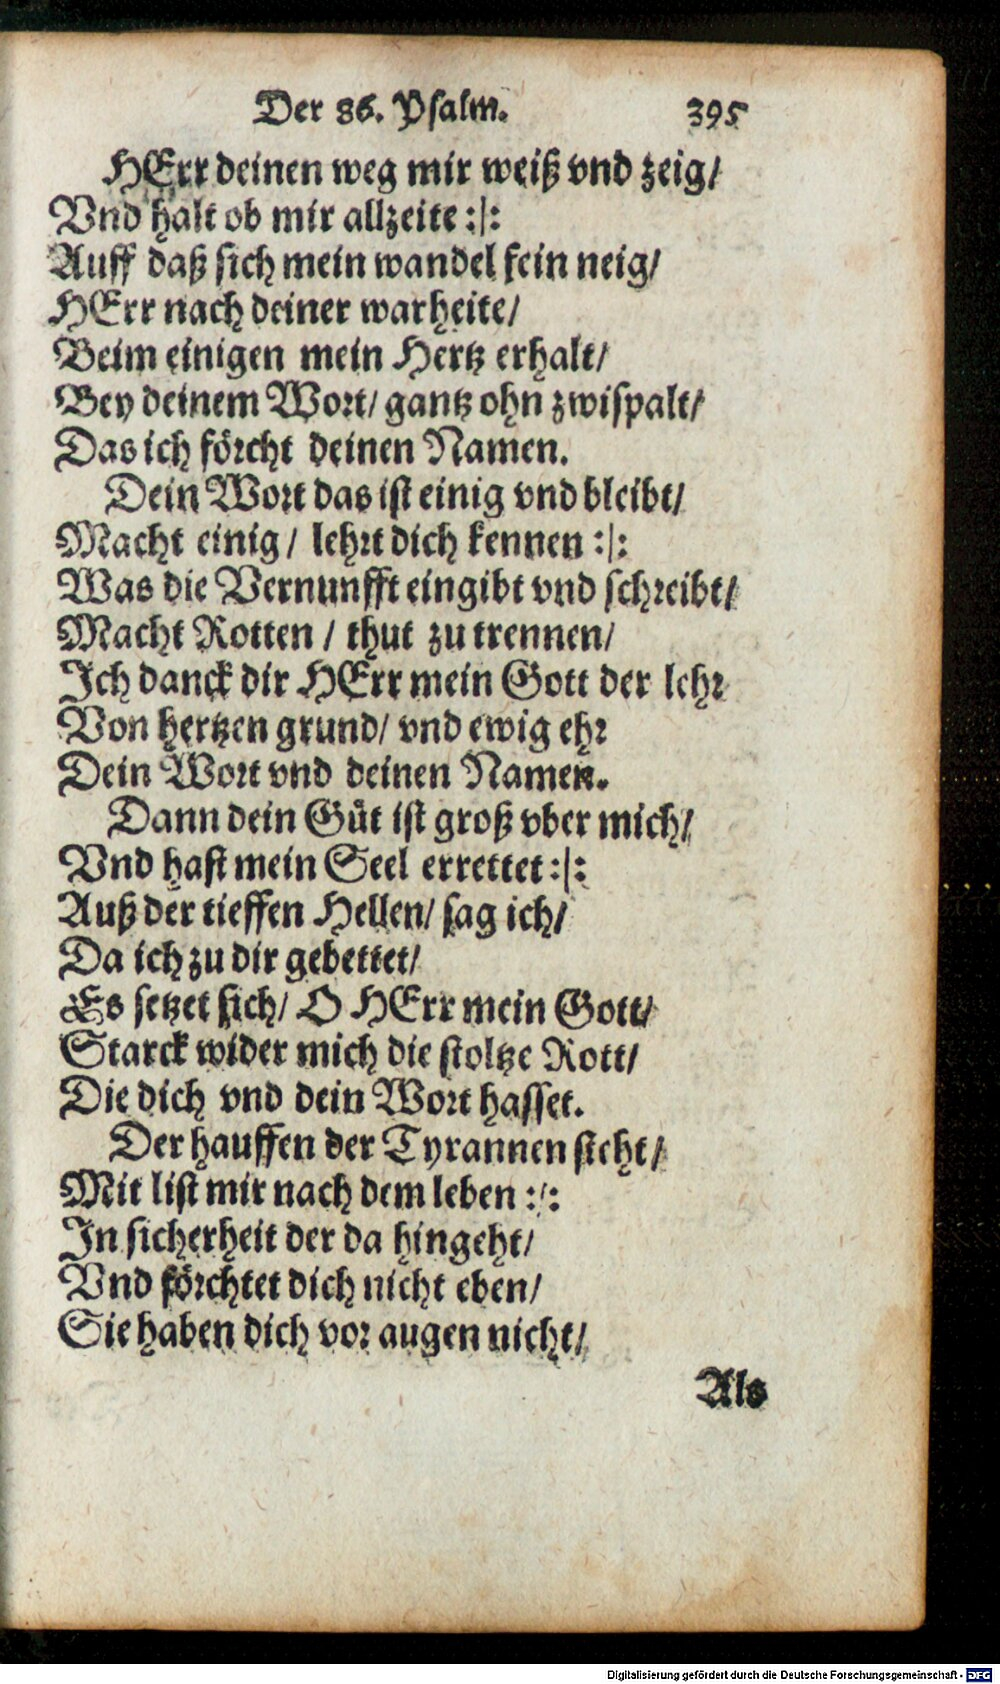 Der 86. Psalm. 395
HErr deinen weg mir weiß vnd zeig/
Vnd halt ob mir allzeite :|:
Auff daß sich mein wandel fein neig/
HErr nach deiner warheite/
Beim einigen mein Hertz erhalt/
Bey deinem Wort/ gantz ohn zwispalt/
Das ich förcht deinen Namen.
Dein Wort das ist einig vnd bleibt/
Macht einig/ lehrt dich kennen :|:
Was die Vernunfft eingibt vnd schreibt/
Macht Rotten / thut zu trennen/
Ich danck dir HErr mein Gott der lehr
Von hertzen grund/ vnd ewig ehr
Dein Wort vnd deinen Namen.
Dann dein Güt ist groß vber mich/
Vnd hast mein Seel errettet :|:
Auß der tieffen Hellen/ sag ich/
Da ich zu dir gebettet/
Es setzet sich/ O HErr mein Gott/
Starck wider mich die stoltze Rott/
Die dich vnd dein Wort hasset.
Der hauffen der Tyrannen steht/
Mit list mir nach dem leben :/:
In sicherheit der da hingeht/
Vnd förchtet dich nicht eben/
Sie haben dich vor augen nicht/
Als
Digitalisierung gefördert durch die Deutsche Forschungsgemeinschaft - DFG